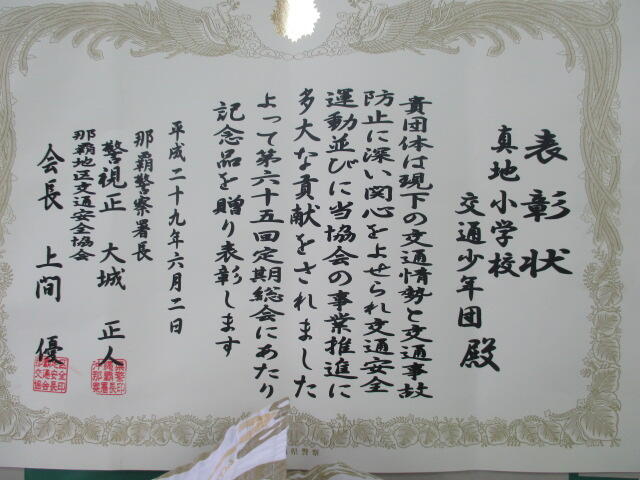 表彰状
真地小学校
交通少年団 殿
貴団体は現下の交通情勢と交通事故
防止に深い関心をよせられ交通安全
運動並びに当協会の事業推進に
多大な貢献をされました
よって第六十五回定期総会にあたり
記念品を贈り表彰します
平成二十九年六月二日
那覇警察署長
警視正 大城 正人
那覇地区交通安全協会
会長 上間 優
県警察